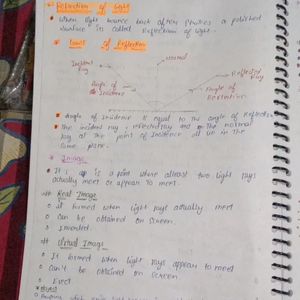 Reflection of Light
When light bounce back after strikes a polished
surface is called Reflection of light.
Laws of Reflection
Incident Ray
Normal
Reflected Ray
Angle of Incidence
Angle of
Angle of Incidence is equal to the angle of Reflection
The incident ray, reflected ray and the normal
ray at the point of incidence all lie in the
same plane.
Image
It is a point where atleast two light rays
actually meet or appear to meet.
Real Image
It formed when light rays actually meet
can be obtained on screen.
Inverted.
Virtual Image
It formed when light rays appear to meet
Can't be obtained on screen
Erect